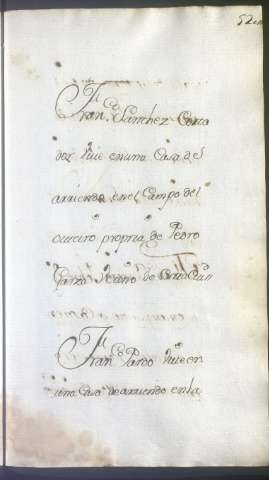 Fran.co Sanchez Corta
dor Vive en una Casa de
arriendo en el Campo del
outeiro propria de Pedro
Garza Vecino de
Fran.co Pardo Vive en
una Casa de arriendo en la